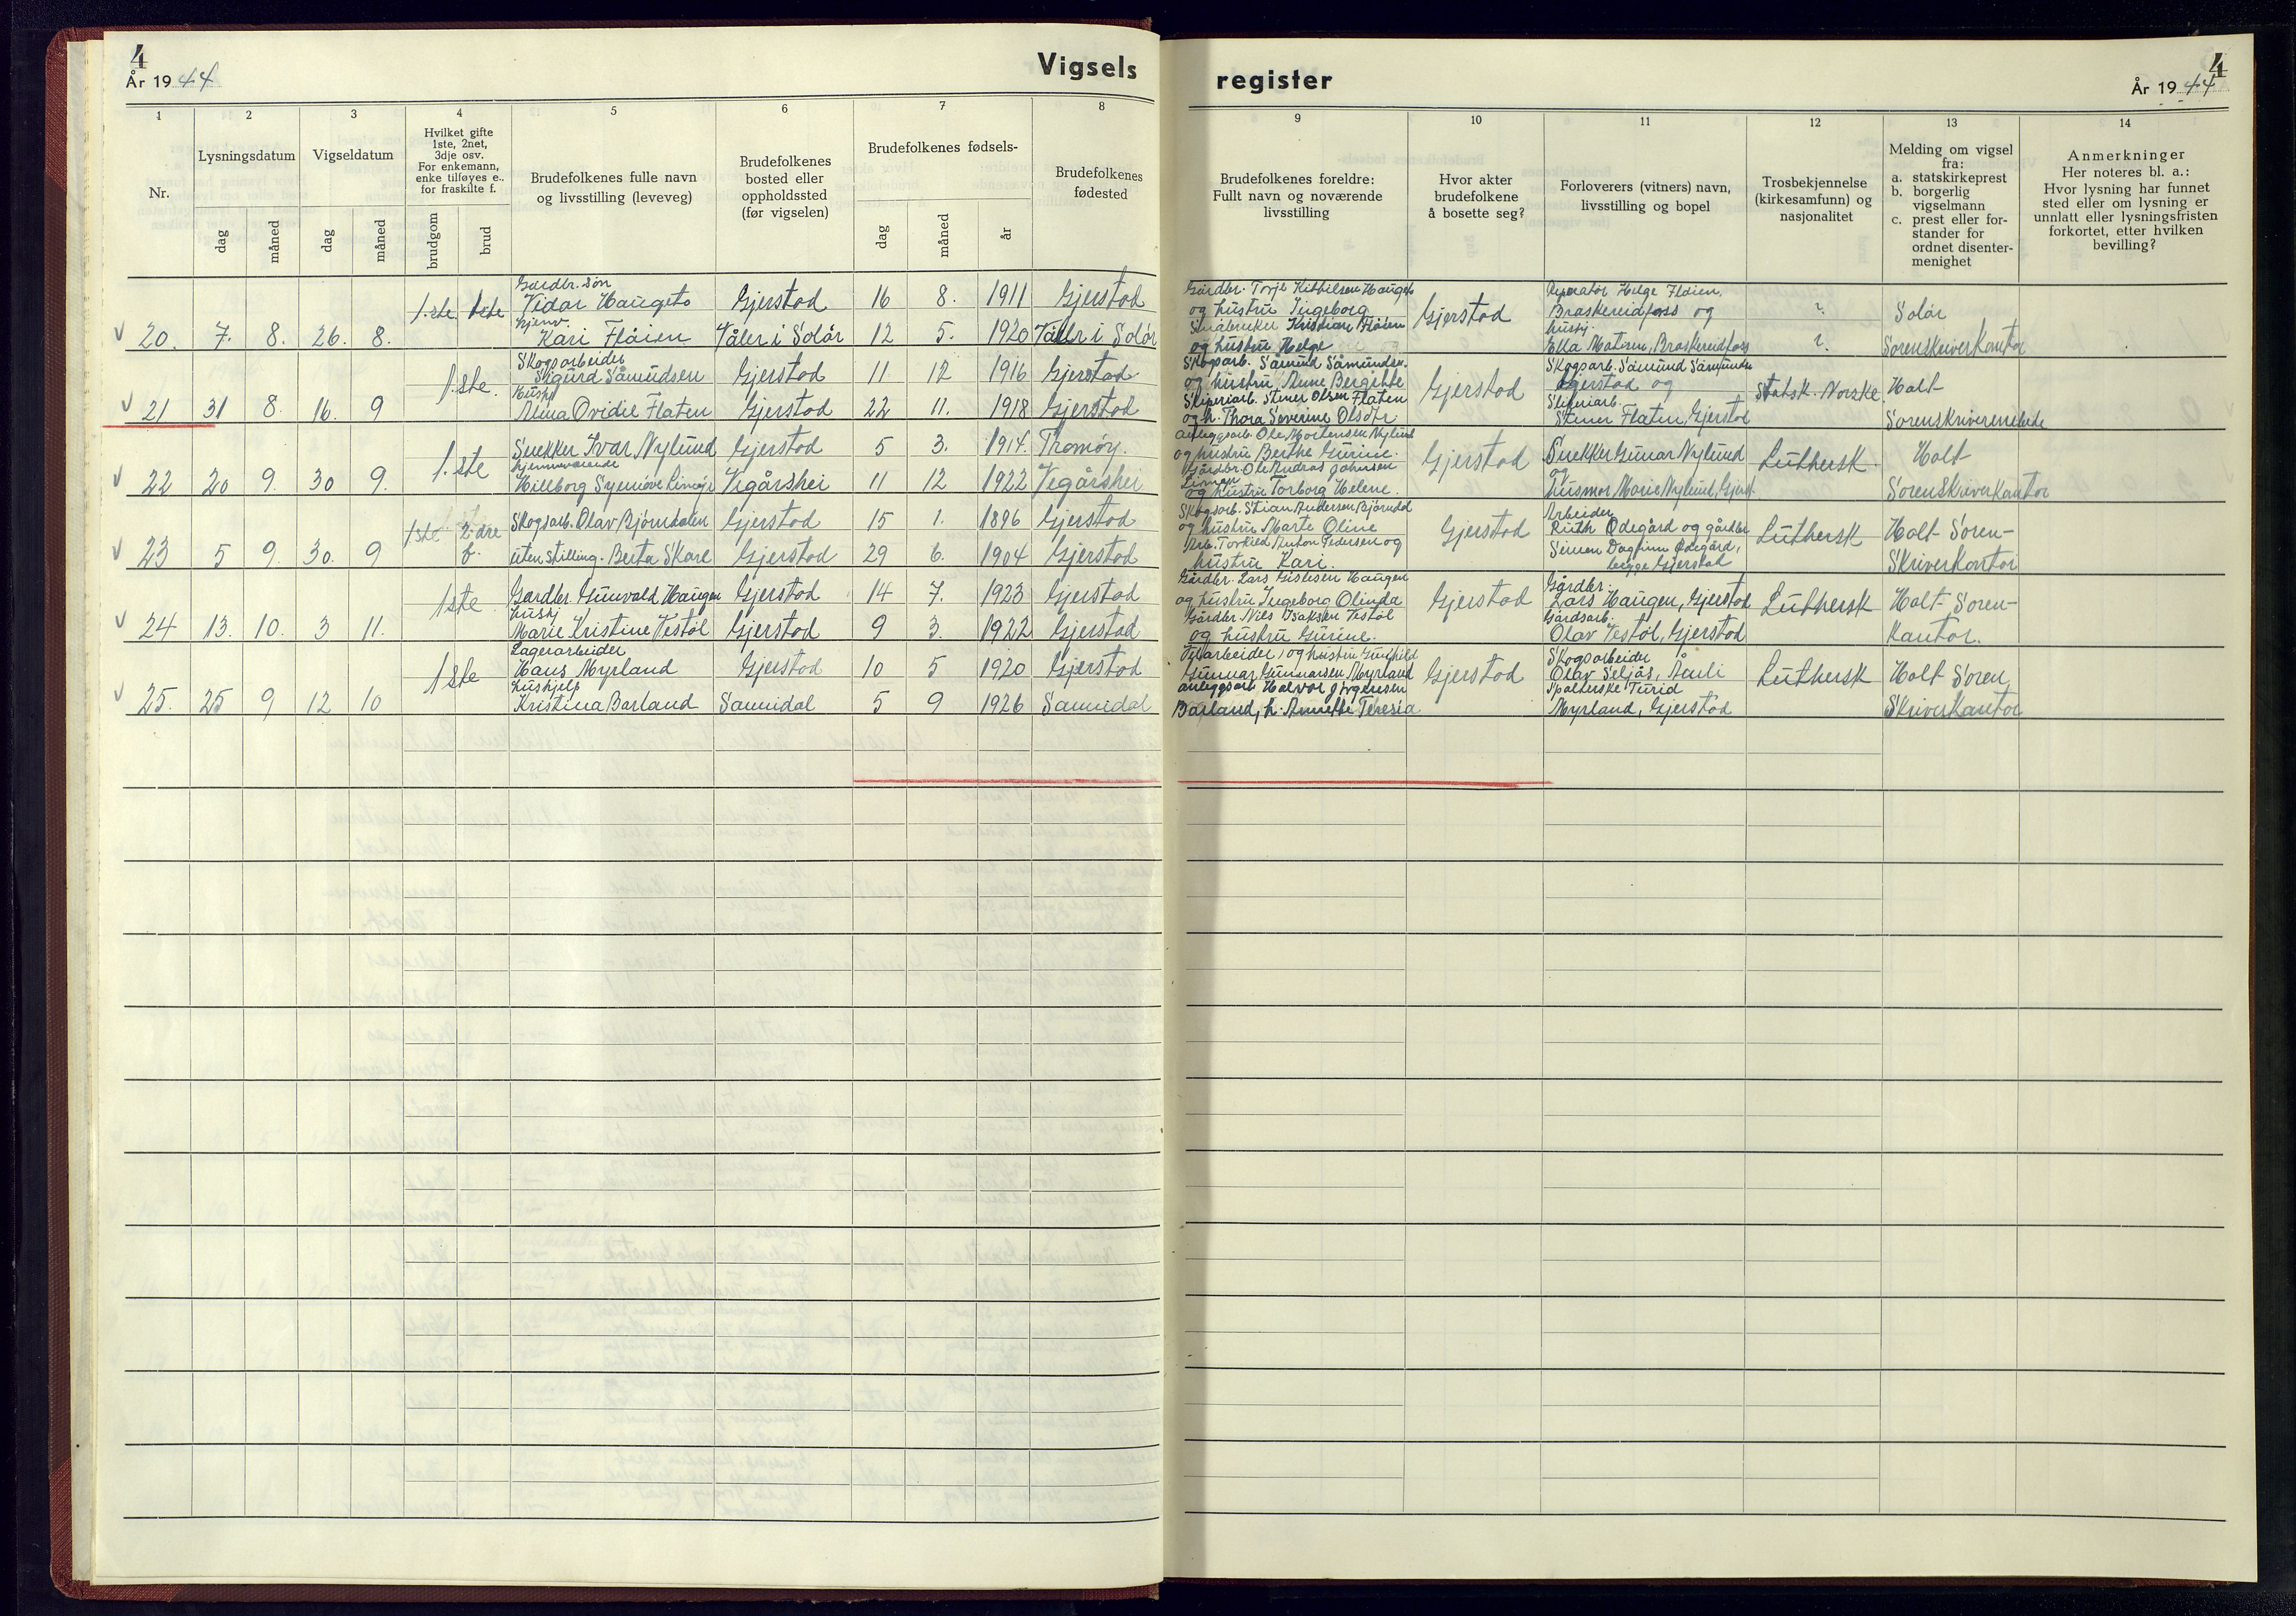 4
År 1944
Vigsels
register
4
År 1944
1 2 3 4 5 6 7 8 9 10 11 12 13 14
Nr.
Lysningsdatum
dag måned
Vigseldatum
dag måned
Hvilket gifte
1ste, 2net,
3dje osv.
For enkemann,
enke tilføyes e.,
for fraskilte f.
brudgom brud
Brudefolkenes fulle navn
og livsstilling (leveveg)
Brudefolkenes
bosted eller
oppholdssted
(før vigselen)
Brudefolkenes fødsels-
dag måned år
Brudefolkenes
fødested
Brudefolkenes foreldre:
Fullt navn og noværende
livsstilling
Hvor akter
brudefolkene
å bosette seg?
Forloverers (vitners) navn,
livsstilling og bopel
Trosbekjennelse
(kirkesamfunn) og
nasjonalitet
Melding om vigsel
fra:
a. statskirkeprest
b. borgerlig
vigselmann
c. prest eller for-
stander for
ordnet disenter-
menighet
Anmerkninger
Her noteres bl. a.:
Hvor lysning har funnet
sted eller om lysning er
unnlatt eller lysningsfristen
forkortet, etter hvilken
bevilling?
20. 7. 8. 26. 8. 1.ste 1ste
Gardbr. søn
Vidar Haugeto Gjerstad 16 8. 1911 Gjerstad
hjemv.
Kari Flåien Våler i Solør 12 5. 1920 Våler i Solør
Gårdbr. Torje Kittilsen Hauget
og hustru Ingeborg
Småbruker Kristian Flåien
og hustru Helge
Gjerstad
Reparatør Helge Flåien,
Braskereidfoss og
husfrj.
Ella Moterud, Braskereidfoss
?
?
Solør
Sorenskriverkantor
21 31 8. 16. 9 1.ste
Skogsarbeider
Sigurd Såmundsen Gjerstad 11 12 1916 Gjerstad
Hushj
Alma Ovidie Flaten Gjerstad 22 11. 1918 Gjerstad
Skogsarb. Såmund Såmundsen.
og hustru Anne Bergitte
Sliperiarb. Stener Olsen Flaten
og h. Thora Severine Olsdtr
Gjerstad
Skogsarb. Såmund Såmunds
Gjerstad og
Sliperiarb.
Stener Flaten, Gjerstad
Statsk. Norske.
Holt
Sorenskriverembede
22 20 9. 30 9. 1.ste
Snekker Ivar Nylund Gjerstad 5 3. 1914. Tromøy.
hjemmeværende
Hillborg Synnøve Limoje Vegårshei 11 12 1922 Vegårshei
anleggsarb. Ole Mortensen Nylund
og hustru Berthe Gurine.
Gårdbr. Ole Andras Johnsen
og hustru Torborg Helene.
Gjerstad
Snekker Gunar Nylund
og
husmor Marie Nylund, Gjerst.
Luthersk.
Holt
Sorenskriverkantor
23 5 9. 30. 9 1ste 2.dre
f.
Skogsarb. Olav Bjørndalen Gjerstad 15 1. 1896 Gjerstad
uten stilling. Berta Skare Gjerstad 29 6. 1904 Gjerstad
Skogsarb. Stian Andersen Bjørndal
og hustru Marte Oline
Arb. Torkild Anton Pedersen og
hustru Kari.
Gjerstad
Arbeider
Ruth Ødegård og gårdbr
Simen Dagfinn Ødegård,
begge Gjerstad
Luthersk
Holt Soren-
skriverkantor
24 13. 10. 3 11. 1ste
Gardbr. Gunvald Haugen Gjerstad 14 7. 1923 Gjerstad
hushj
Marie Kristine Vestøl Gjerstad 9 3. 1922 Gjerstad
Gårdbr. Lars Gislesen Haugen
og hustru Ingeborg Olinda
Gårdbr Nils Isaksen Vestøl
og hustru Gurine.
Gjerstad
Gårdbr.
Lars Haugen, Gjerstad
Gårdsarb.
Olav Vestøl, Gjerstad
Luthersk
Holt Soren-
kantor.
25. 25 9 12 10 1ste
Lagerarbeider
Hans Myrland Gjerstad 10 5 1920 Gjerstad
hushjelp
Kristina Barland Sannidal 5 9 1926 Sannidal
arbeider, og hustru Gunhild
Gunnar Gunnarsen Myrland
anleggsarb Halvor Jørgensen
Barland, h. Annette Teresia
Gjerstad
Skogsarbeider
Olav Seljås, Åmli
Turid
Myrland, Gjerstad
Luthersk
Holt Soren
Skriverkantor